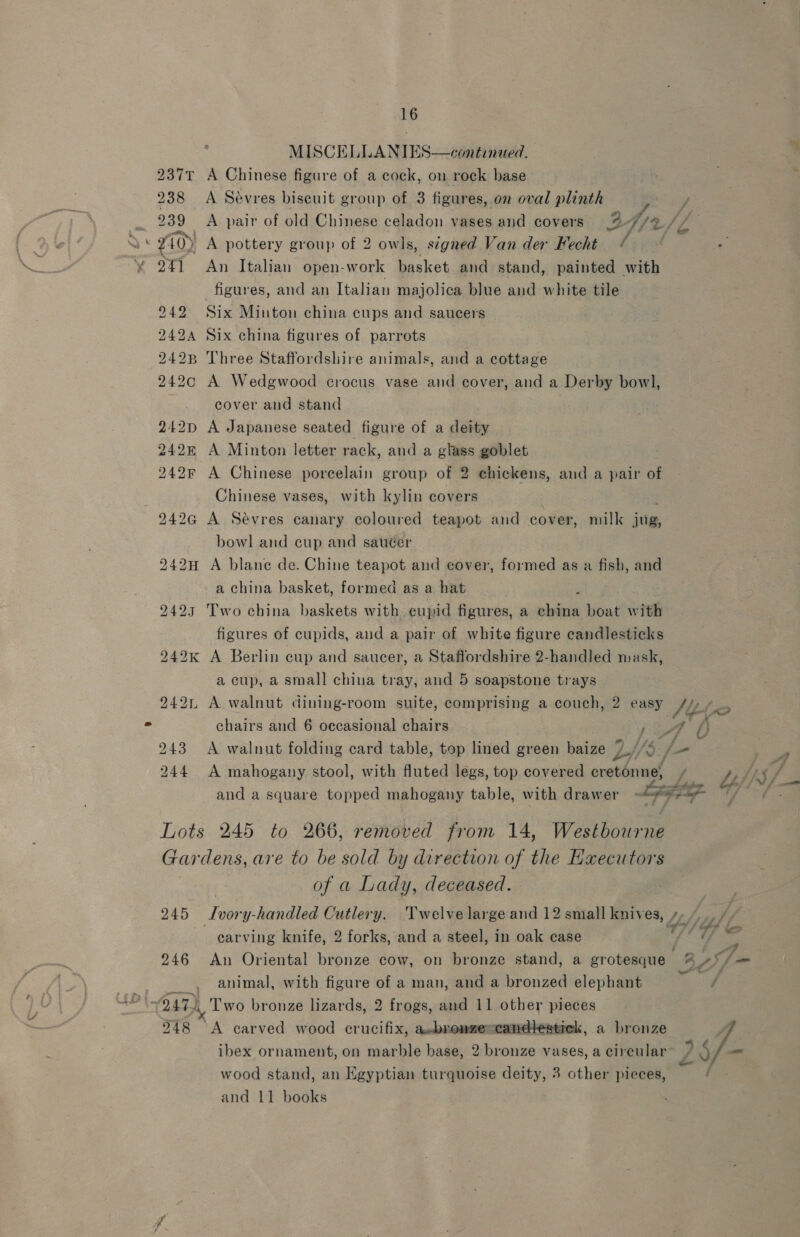 16
MISCELLANIES—continued.
237T A Chinese figure of a cock, on rock base
238 A Sèvres biscuit group of 3 figures, on oval plinth
239 A pair of old Chinese celadon vases and covers
240 A pottery group of 2 owls, signed Van der Fecht
241 An Italian open-work basket and stand, painted with
figures, and an Italian majolica blue and white tile
242 Six Minton china cups and saucers
242A Six china figures of parrots
242B Three Staffordshire animals, and a cottage
242C A Wedgwood crocus vase and cover, and a Derby bowl,
cover and stand
242D A Japanese seated figure of a deity
242E A Minton letter rack, and a glass goblet
242F A Chinese porcelain group of 2 chickens, and a pair of
Chinese vases, with kylin covers
242G A Sèvres canary coloured teapot and cover, milk jug,
bowl and cup and saucer
242H A blanc de. Chine teapot and cover, formed as a fish, and
a china basket, formed as a hat
242J Two china baskets with cupid figures, a china boat with
figures of cupids, and a pair of white figure candlesticks
242K A Berlin cup and saucer, a Staffordshire 2-handled mask,
a cup, a small china tray, and 5 soapstone trays
242L A walnut dining-room suite, comprising a couch, 2 easy
chairs and 6 occasional chairs
243 A walnut folding card table, top lined green baize
244 A mahogany stool, with fluted legs, top covered cretonne,
and a square topped mahogany table, with drawer
Lots 245 to 266, removed from 14, Westbourne
Gardens, are to be sold by direction of the Executors
of a Lady, deceased.
245 Ivory-handled Cutlery. Twelve large and 12 small knives,
carving knife, 2 forks, and a steel, in oak case
246 An Oriental bronze cow, on bronze stand, a grotesque
animal, with figure of a man, and a bronzed elephant
247 Two bronze lizards, 2 frogs, and 11 other pieces
248 A carved wood crucifix, a bronze candlestick, a bronze
ibex ornament, on marble base, 2 bronze vases, a circular
wood stand, an Egyptian turquoise deity, 3 other pieces,
and 11 books